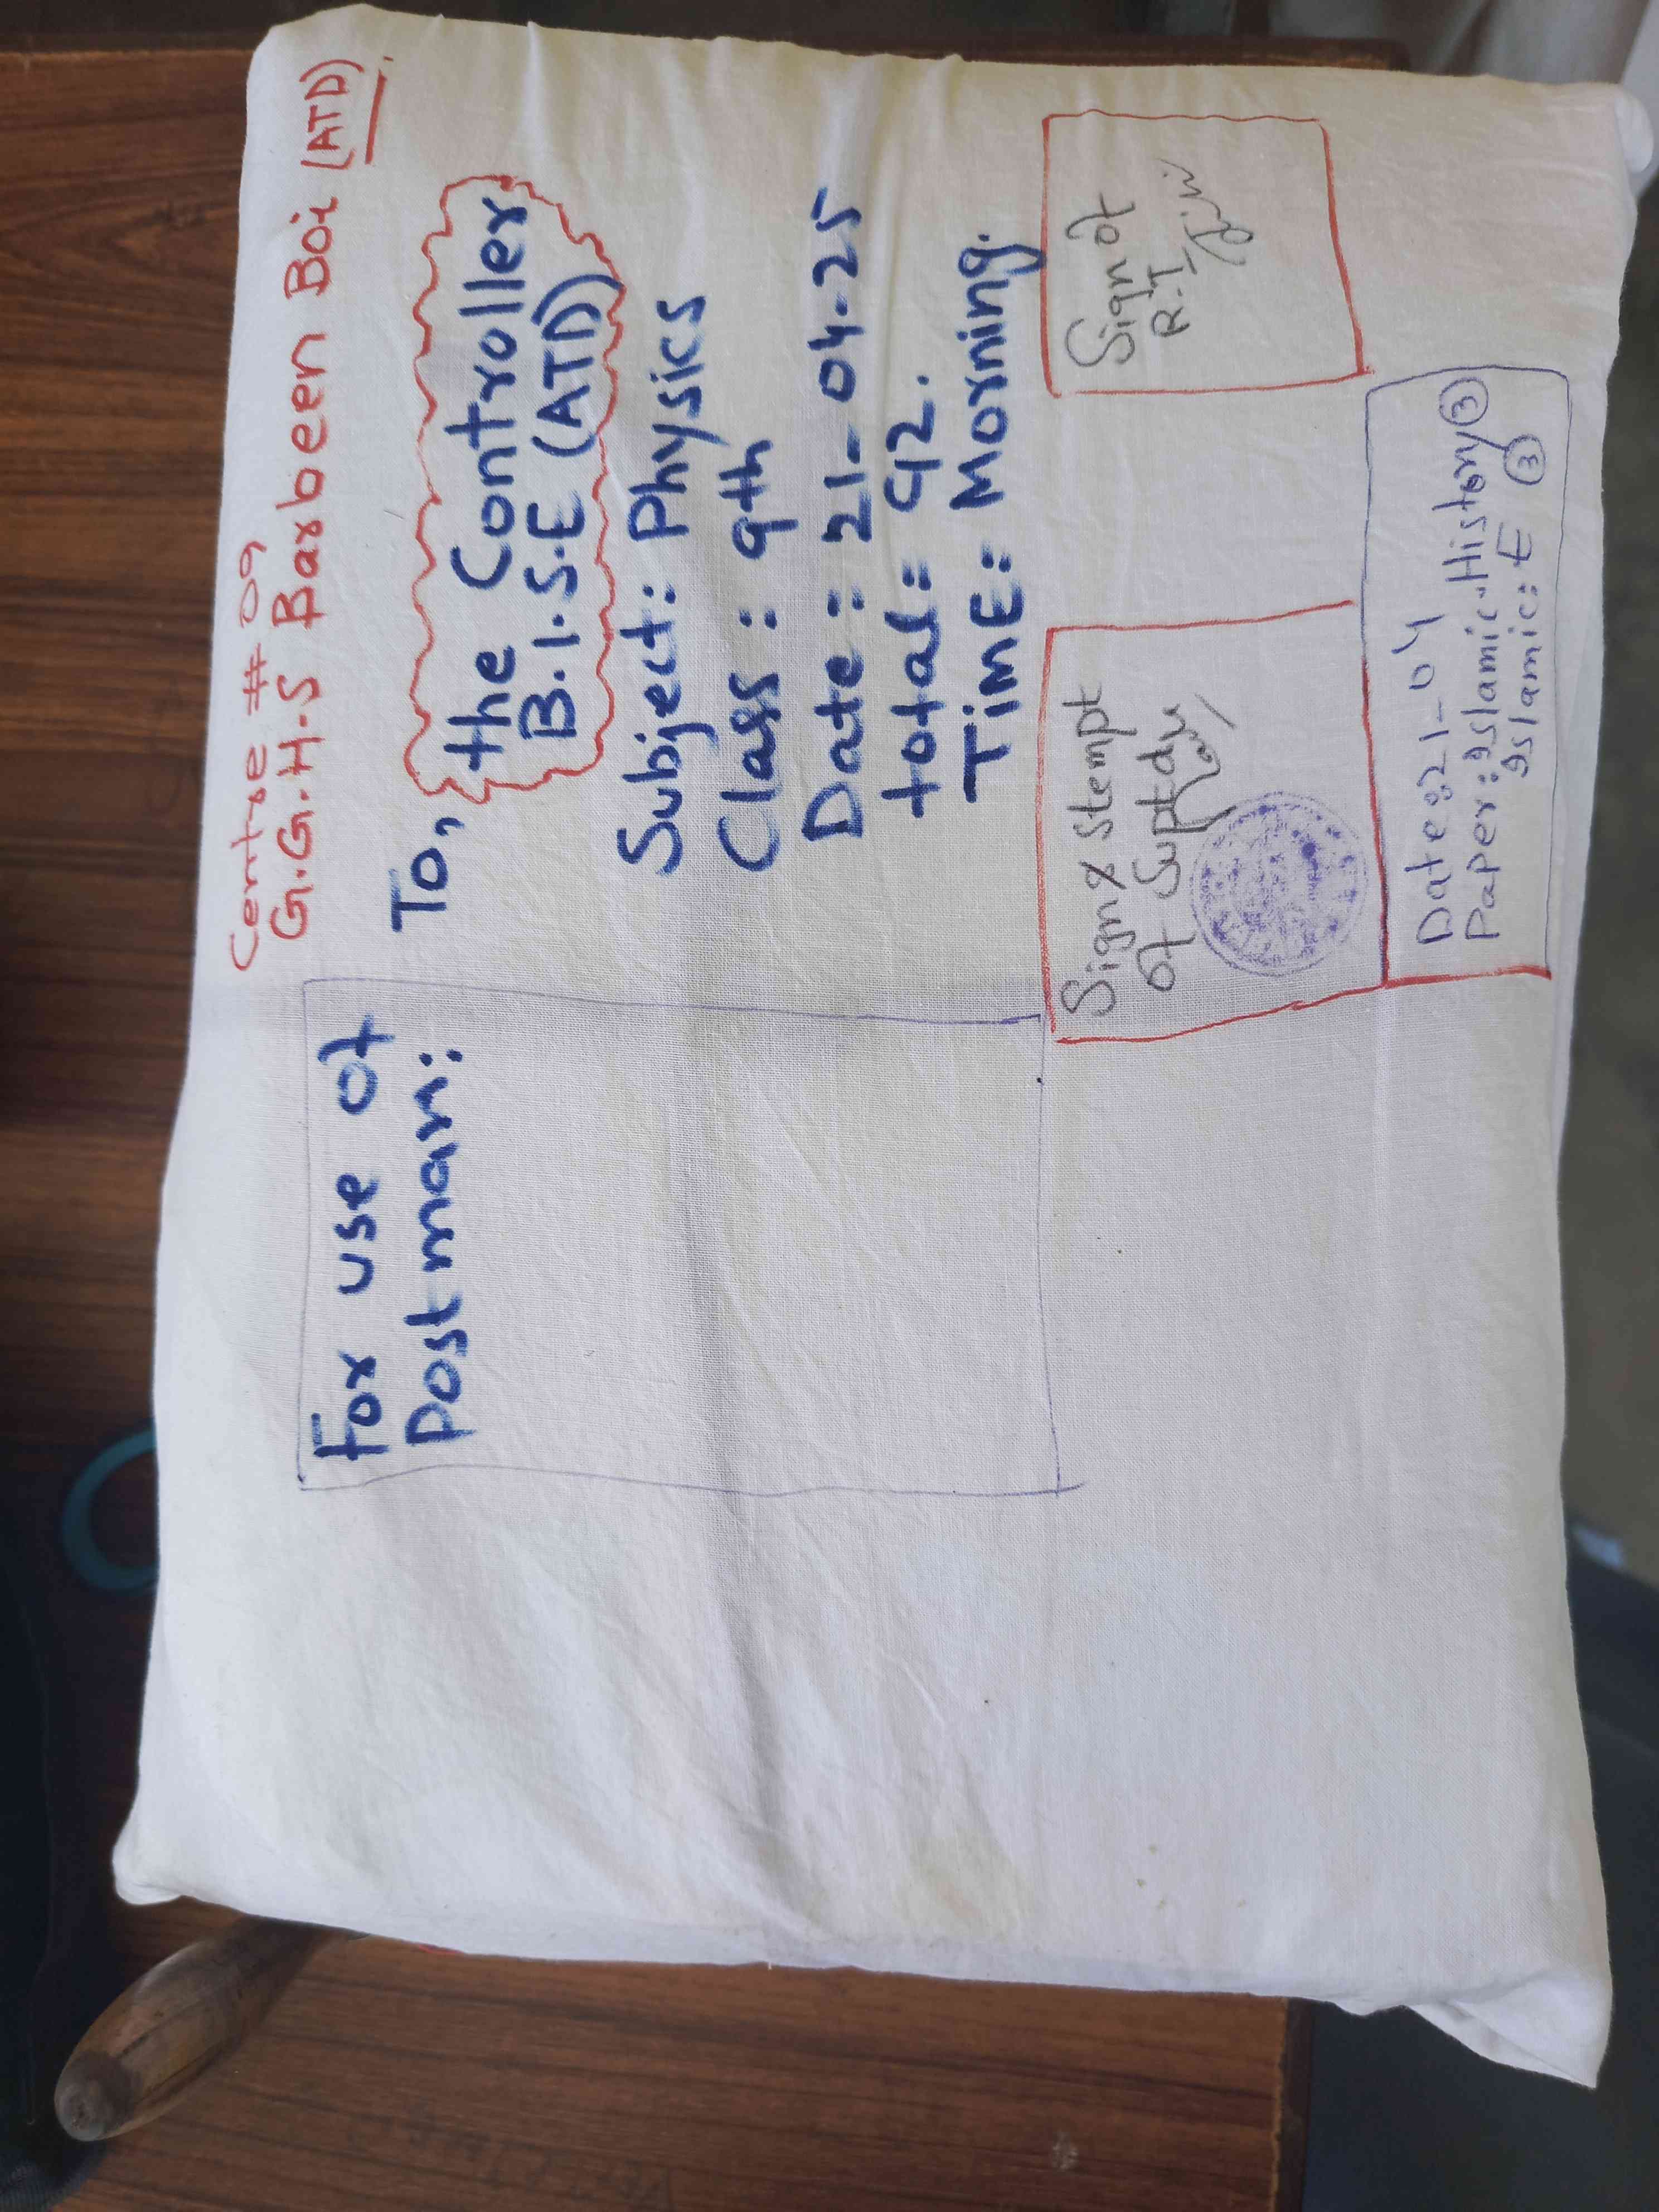 Centre # 09
G.G.H.S Barbeen Boi (ATD)
For use of
Post man:
To,
the Controller
B.I.S.E (ATD)
Subject: Physics
Class: 9th
Date: 21-04-25
total: 92.
TimE: Morning.
Sign & Stempt
of Suptd
Sign of
R.I
Date: 21-04
Paper: Islamic-History 3
Islamic: E 3